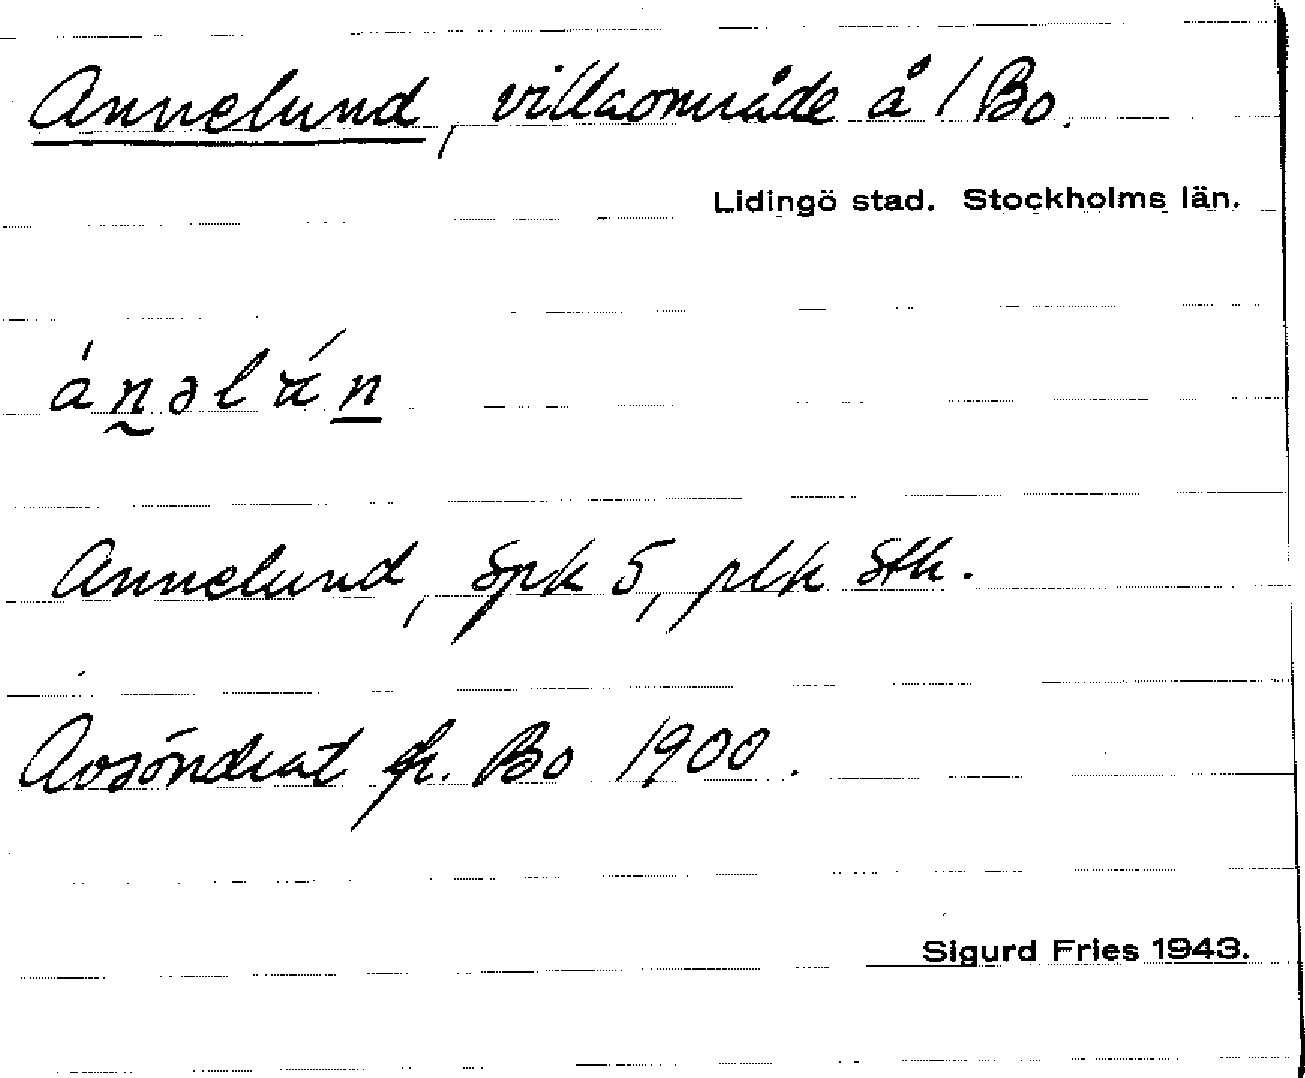 Annelund, villaområde å 1 Bo.
Lidingö stad. Stockholms län.
ánəlún
Annelund, spk 5, plk Sth.
Avsöndrat fr. Bo 1900.
Sigurd Fries 1943.